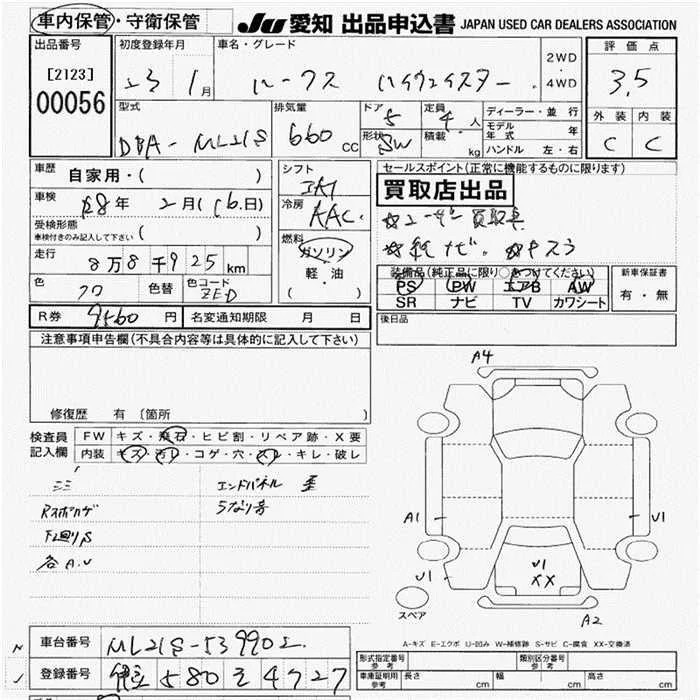 車内保管・守衛保管
JU 愛知 出品申込書 JAPAN USED CAR DEALERS ASSOCIATION
出品番号
[2123]
00056
初度登録年月
23 1月
車名・グレード
ルークス ハイウェイスター
2WD
・
4WD
評価点
3.5
外装 内装
C C
型式
DBA-ML21S
排気量
660 CC
ドア 5
形状 SW
定員 4 人
積載 kg
ディーラー・並行
モデル年式 年
ハンドル 左・右
車歴 自家用・( )
車検 R8年 2月(16日)
受検形態
車検付きのみ記入して下さい ( )
走行
8万8千925km
色 クロ
色替
色コード ZED
シフト
IAT
冷房
AAC
燃料
ガソリン
軽・油
( )
セールスポイント(正常に機能するものに限ります)
買取店出品
☆ユーザー買取車
☆純ナビ。☆キスラ
装備品(純正品に限り○をつけてください)
PS PW エアB AW
SR ナビ TV カワシート
新車保証書
有・無
R券 9560 円
名変通知期限 月 日
後日品
注意事項申告欄(不具合内容等は具体的に記入して下さい)
修復歴 有〔箇所 〕
検査員記入欄
FW キズ・飛石・ヒビ割・リペア跡・X要
内装 キズ・汚レ・コゲ・穴・スレ・キレ・破レ
エンドパネル 歪
うなり音
下廻りS
各A.U
A4
A1
U1
U1
U1
XX
A2
スペア
A-キズ E-エクボ U-凹み W-補修跡 S-サビ C-腐食 XX-交換済
車台番号 ML21S-539902
登録番号 580 そ 4727
形式指定番号 参考
類別区分番号 参考
車庫証明用 参考 長さ cm 幅 cm 高さ cm